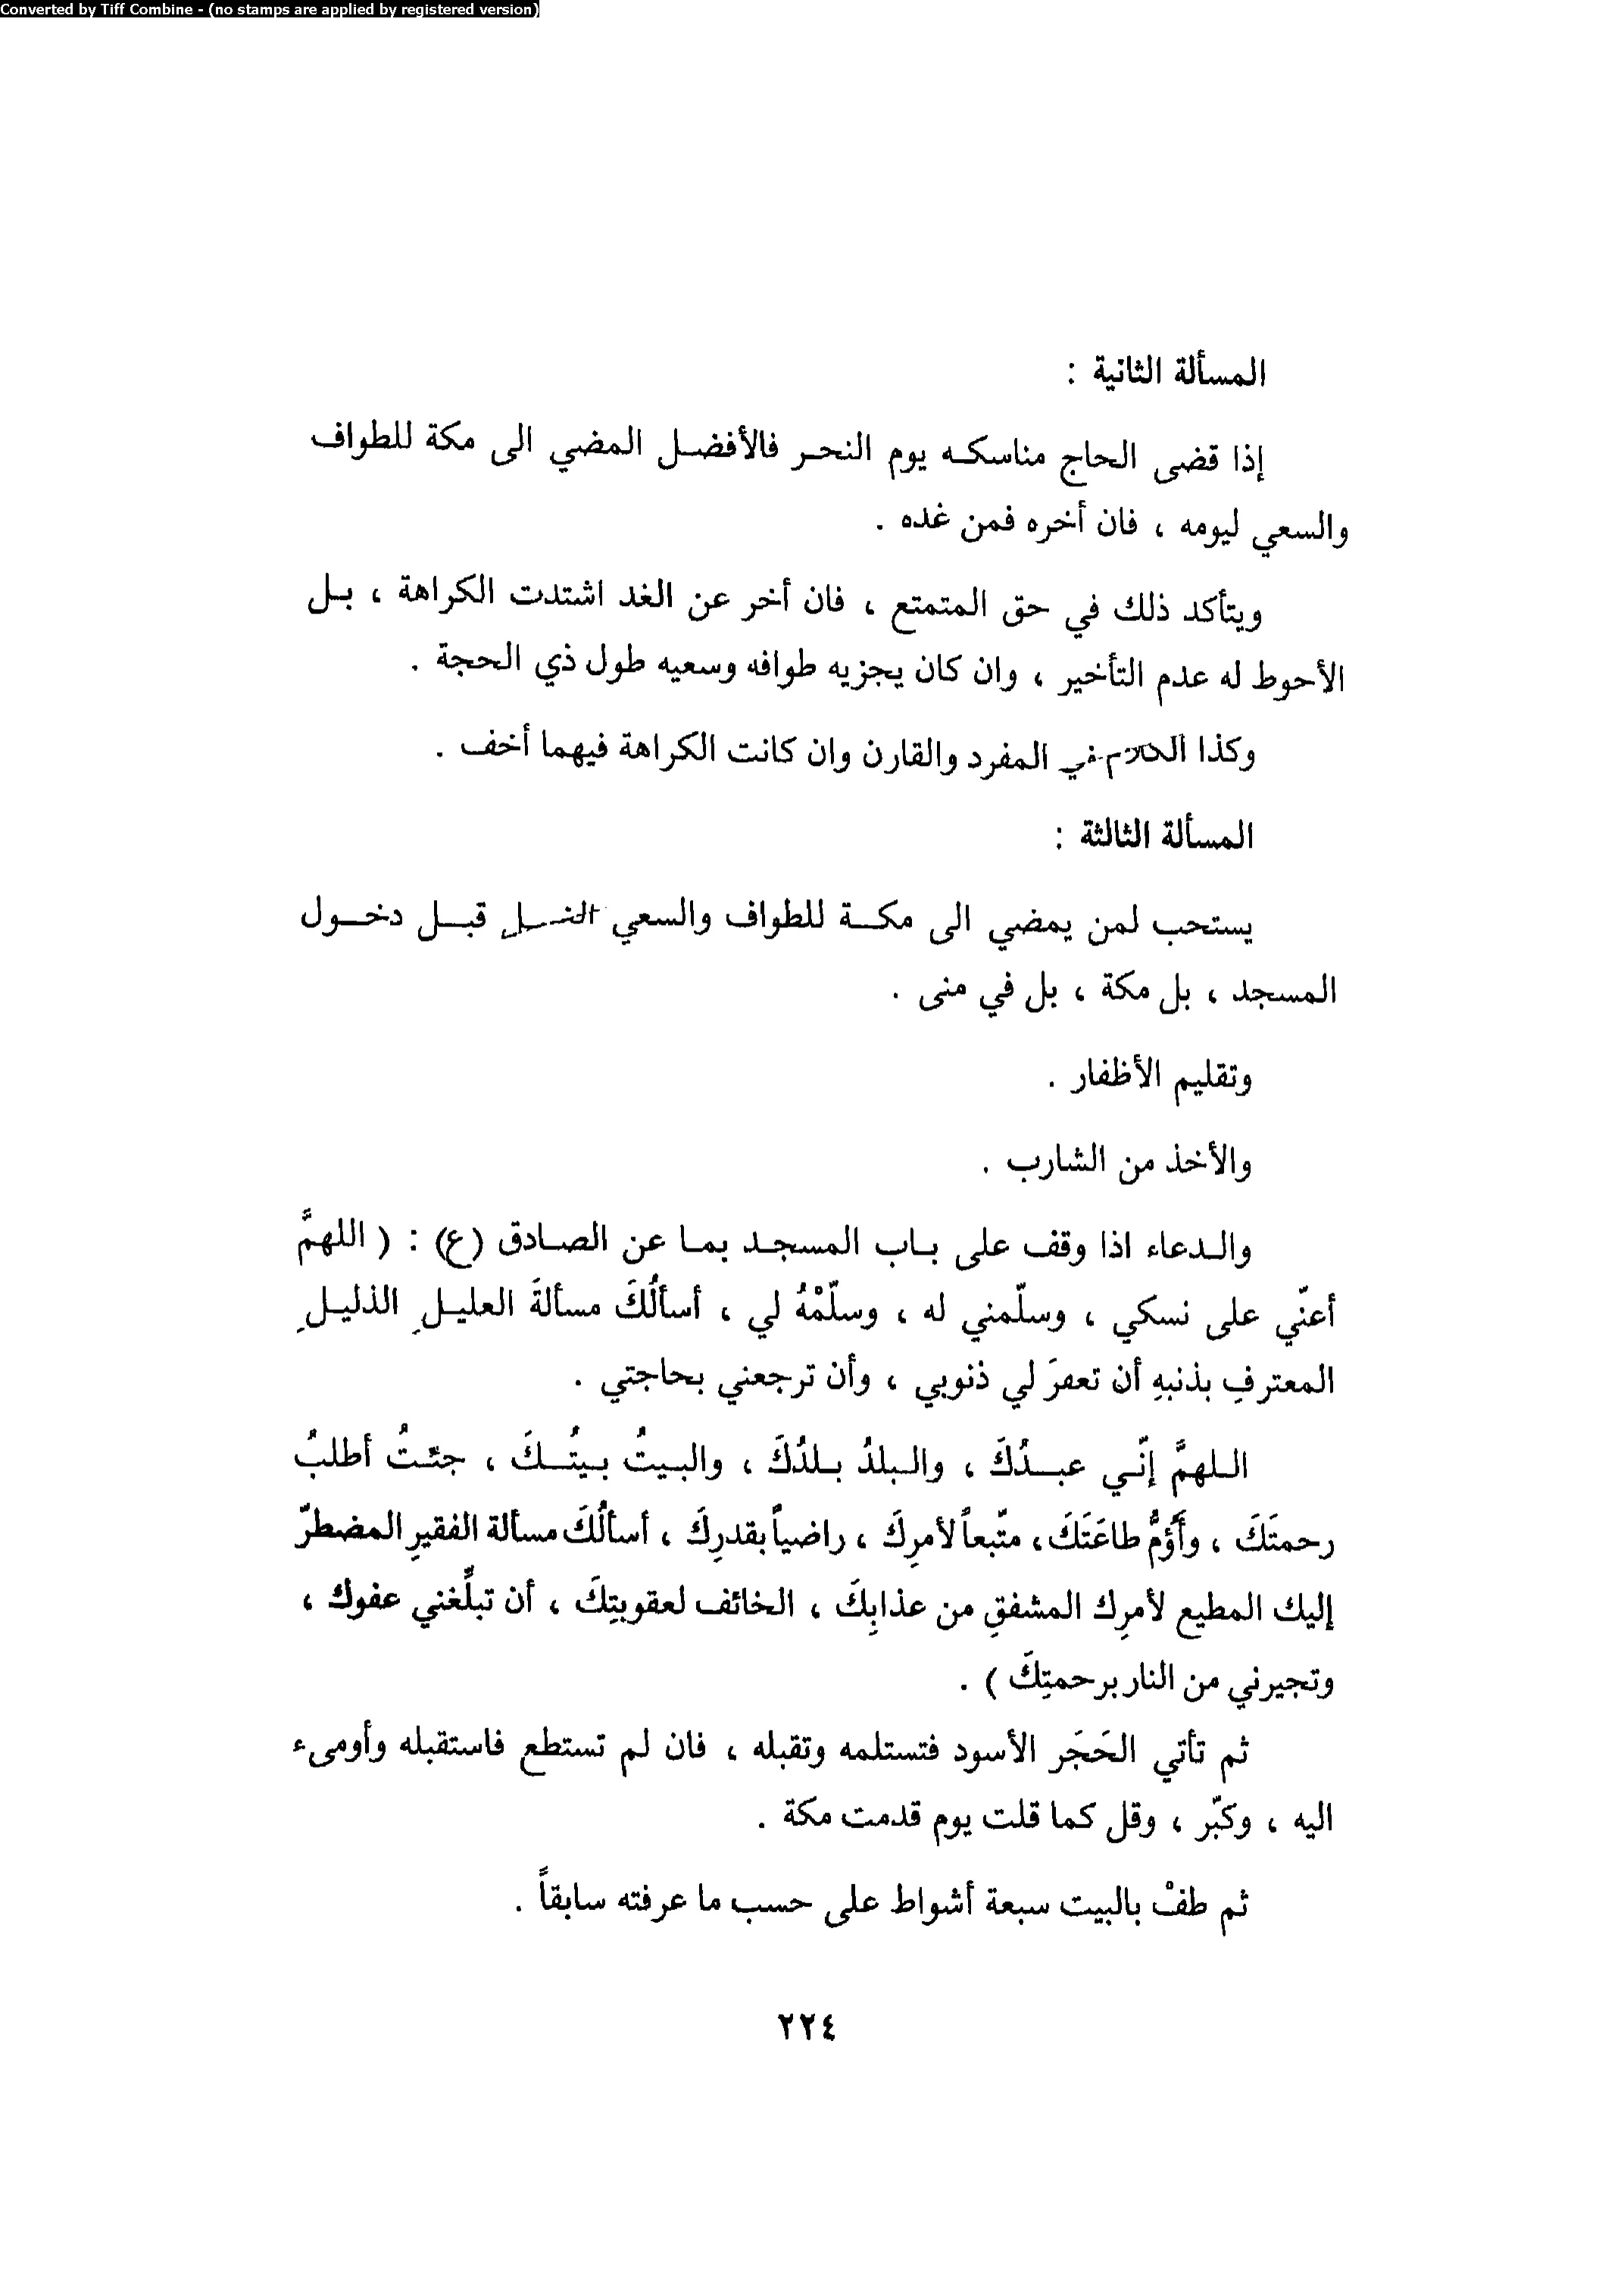 Converted by Tiff Combine - (no stamps are applied by registered version)
المسألة الثانية :
إذا قضى الحاج مناسكه يوم النحر فالأفضل المضي الى مكة للطواف
والسعي ليومه ، فان أخره فمن غده .
ويتأكد ذلك في حق المتمتع ، فان أخر عن الغد اشتدت الكراهة ، بل
الأحوط له عدم التأخير ، وان كان يجزيه طوافه وسعيه طول ذي الحجة .
وكذا الكلام في المفرد والقارن وان كانت الكراهة فيهما أخف .
المسألة الثالثة :
يستحب لمن يمضي الى مكة للطواف والسعي الغسل قبل دخول
المسجد ، بل مكة ، بل في منى .
وتقليم الأظفار .
والأخذ من الشارب .
والدعاء اذا وقف على باب المسجد بما عن الصادق (ع) : ( اللهمَّ
أعنّي على نسكي ، وسلّمني له ، وسلّمْهُ لي ، أسألُكَ مسألةَ العليلِ الذليلِ
المعترفِ بذنبهِ أن تغفرَ لي ذنوبي ، وأن ترجعني بحاجتي .
اللهمَّ إنّي عبدُكَ ، والبلدُ بلدُكَ ، والبيتُ بيتُكَ ، جئتُ أطلبُ
رحمتَكَ ، وأَؤمُّ طاعَتَكَ ، متّبعاً لأمرِكَ ، راضياً بقدرِكَ ، أسألُكَ مسألة الفقيرِ المضطرّ
إليك المطيع لأمرِك المشفقِ من عذابِكَ ، الخائف لعقوبتِكَ ، أن تبلّغني عفوك ،
وتجيرني من النار برحمتِكَ ) .
ثم تأتي الحَجَر الأسود فتستلمه وتقبله ، فان لم تستطع فاستقبله وأومىء
اليه ، وكبّر ، وقل كما قلت يوم قدمت مكة .
ثم طفْ بالبيت سبعة أشواط على حسب ما عرفته سابقاً .
٢٢٤